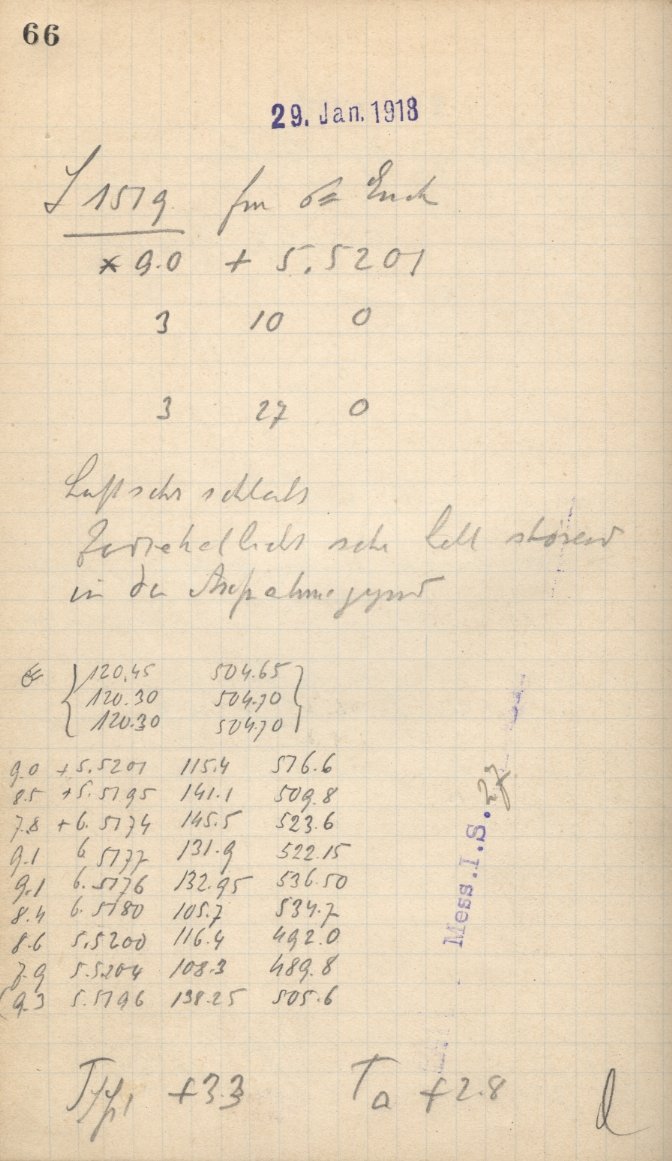 66
29. Jan. 1918
1519
* 9.0 + 5.5201
3 10 0
3 27 0
Luft sehr schlecht
Zodiakallicht sehr hell störend
in der Aufnahmegegend
120.45 504.65
120.30 504.70
120.30 504.70
9.0 +5.5201 115.4 516.6
8.5 +5.5195 141.1 509.8
7.8 +6.5174 145.5 523.6
9.1 6.5177 131.9 522.15
9.1 6.5176 132.95 536.50
8.4 6.5180 105.7 534.7
8.6 5.5200 116.4 492.0
7.9 5.5204 108.3 489.8
(9.3 5.5196 138.25 505.6
+3.3 Ta +2.8
Mess.I.S. 27